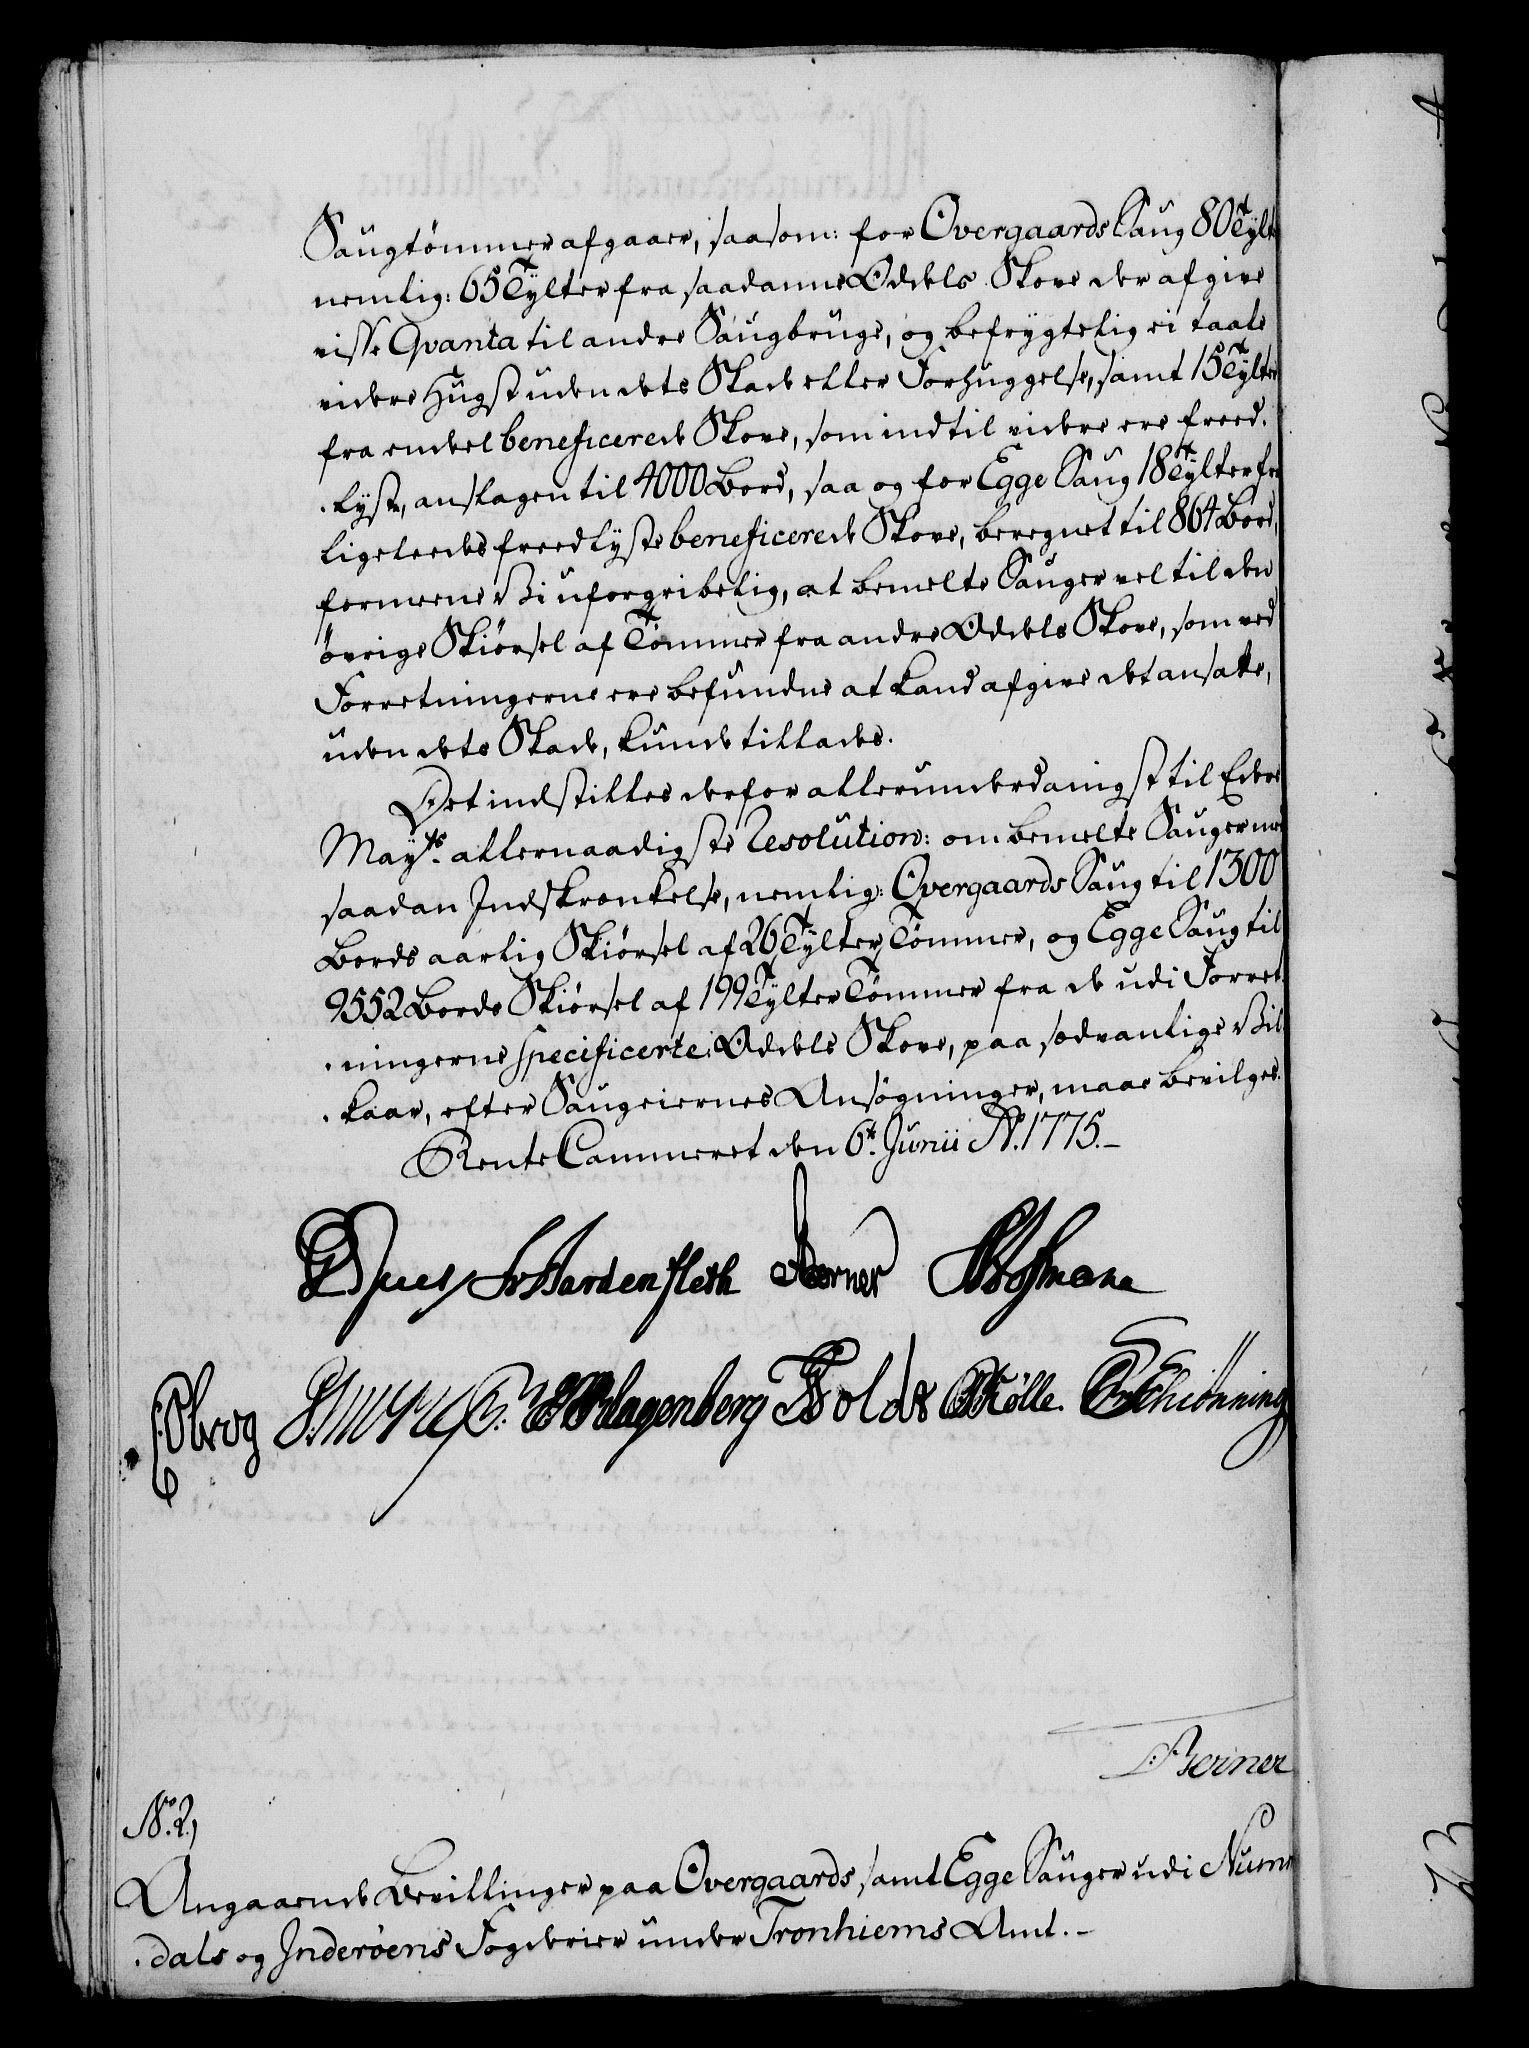 Saugtömmer afgaaer, saasom: for Overgaards Saug 80 Tylt
nemlig: 65 Tylter fra saadanne Oddels Skove der afgive
visse Qvanta til andre Saugbruge, og befrygtelig ei taale
videre Hugst uden dets Skade eller Forhuggelse, samt 15 Tylter
fra endeel beneficerede Skove, som indtil videre ere freed-
lyste, anslagen til 4000 Bord, saa og for Egge Saug 18 Tylter fra
ligeleedes freedlyste beneficerede Skove, beregnet til 864 Bord,
formeene Vi uforgribelig, at bemelte Sauger vel til den
övrige Skiörsel af Tömmer fra andre Oddels Skove, som ved
Forretningerne ere befundne at kand afgive det ansatte,
uden dets Skade, kunde tillades.
Det indstilles derfor allerunderdanigst til Eders
Mayts. allernaadigste Resolution: om bemelte Sauger med
saadan Indskrænkelse, nemlig: Overgaards Saug til 1300
Bords aarlig Skiörsel af 26 Tylter Tömmer, og Egge Saug til
9552 Bords Skiörsel af 199 Tylter Tömmer fra de udi Forret-
ningerne specificerte Oddels Skove, paa sædvanlige Vil-
kaar, efter Saugeiernes Ansögninger, maae bevilges.
Rente Cammeret den 6t. Junii Ao. 1775.
FvHardenfleth Berner Hofmann
Klagenberg Holde Kölle. Schiönning
Berner
No. 2,
Angaaende Bevillinger paa Overgaards, samt Egge Sauger udi Num-
dals og Inderöens Fogderier under Tronhiems Amt.